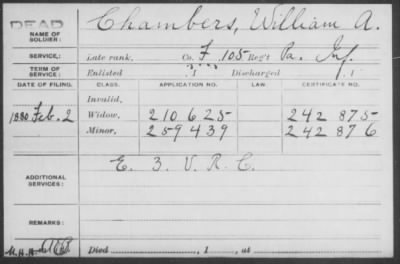 DEAD
NAME OF SOLDIER: Chambers, William A.
SERVICE: Late rank, Co. F 105 Reg't Pa. Inf.
TERM OF SERVICE: Enlisted , 1 Discharged , 1
DATE OF FILING. CLASS. APPLICATION NO. LAW. CERTIFICATE NO.
Invalid,
1880 Feb. 2 Widow, 210 625 242 875
Minor, 259439 242 876
ADDITIONAL SERVICES: E. 3. V. R. C.
REMARKS:
Died , 1 , at